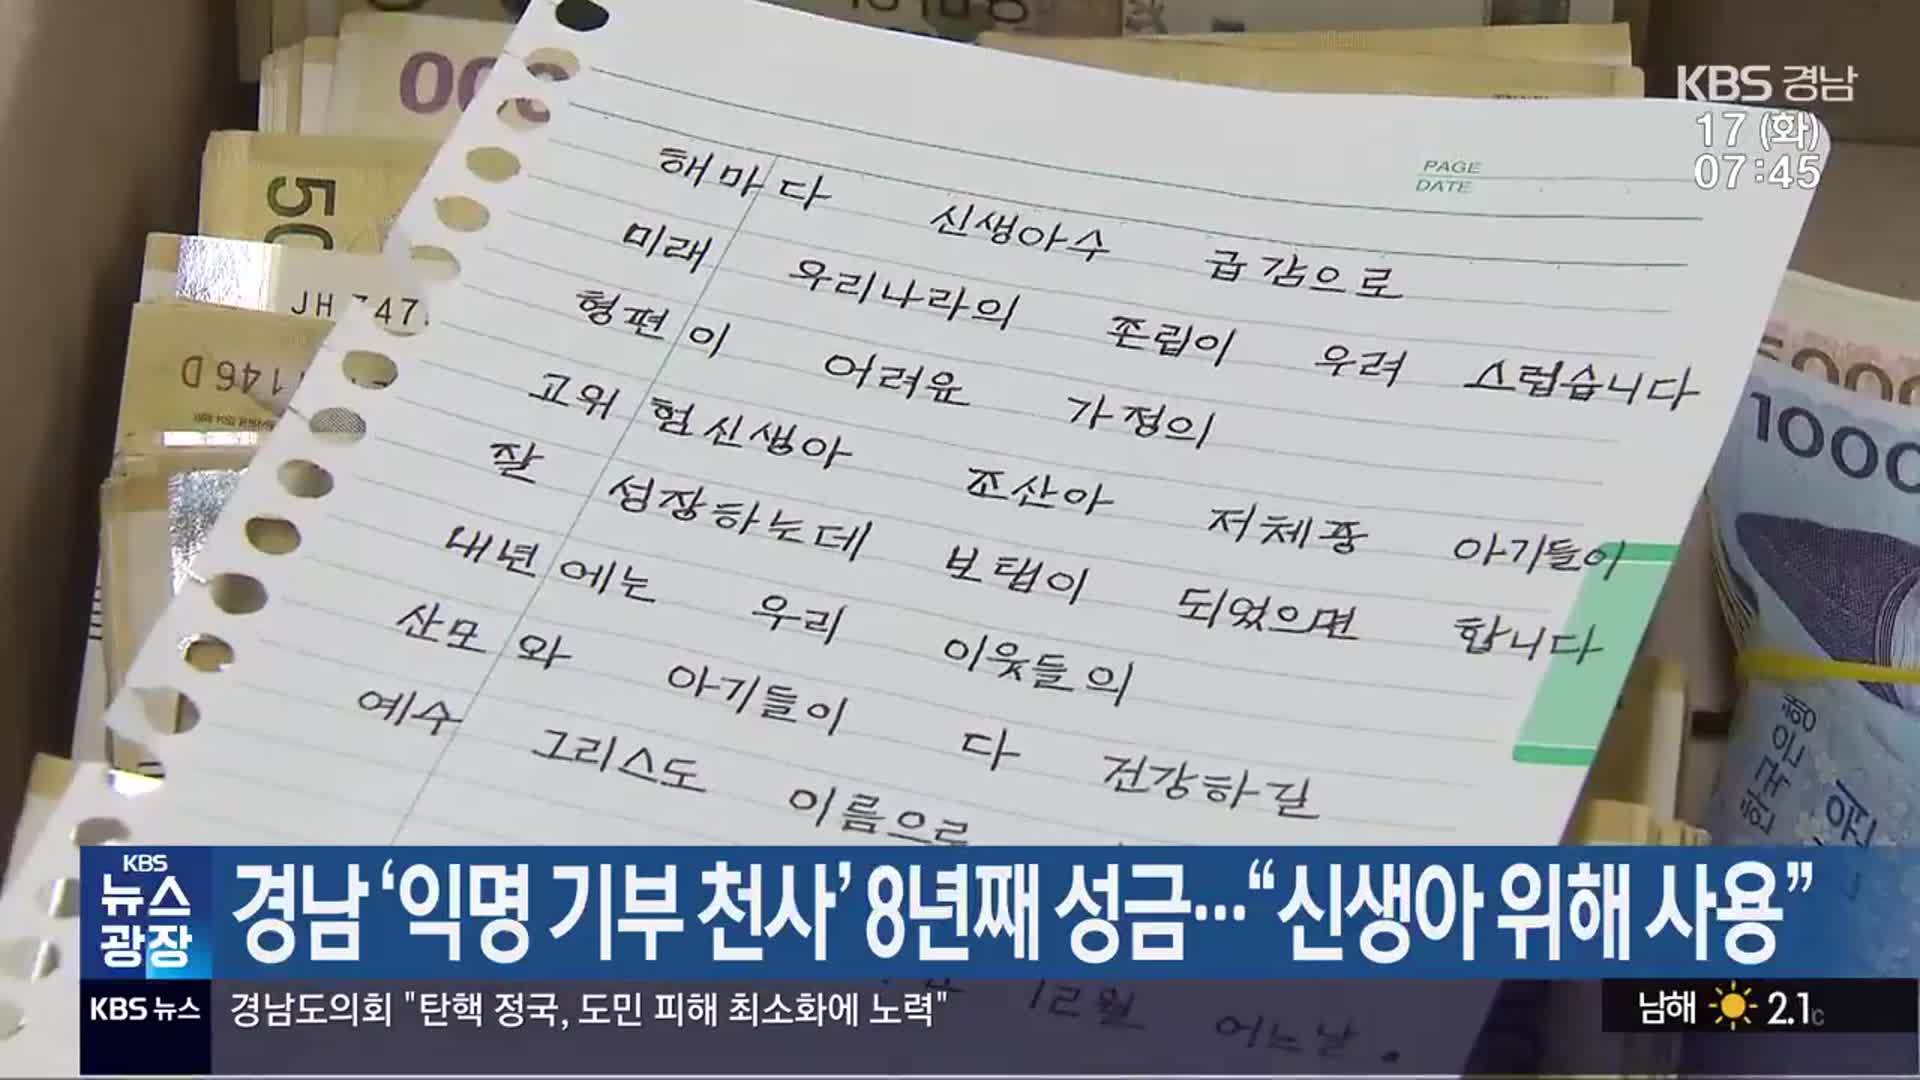 000
50
JH 747
1146 D
KBS 경남
17 (화)
07:45
PAGE
DATE
해마다 신생아수 급감으로
미래 우리나라의 존립이 우려 스럽습니다
형편이 어려운 가정의
고위험신생아 조산아 저체중 아기들이
잘 성장하는데 보탬이 되었으면 합니다
내년에는 우리 이웃들의
산모와 아기들이 다 건강하길
예수 그리스도 이름으로
12월 어느날.
5000
1000
한국은행
KBS
뉴스
광장
경남 ‘익명 기부 천사’ 8년째 성금…“신생아 위해 사용”
KBS 뉴스
경남도의회 "탄핵 정국, 도민 피해 최소화에 노력"
남해 2.1c